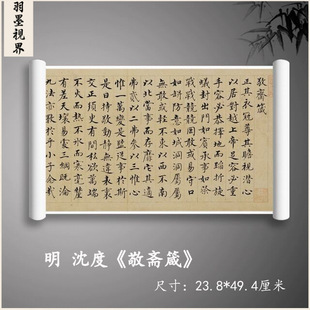 羽墨视界
敬齋箴
正其衣冠尊其瞻視潛心
以居對越上帝足容必重
手容必恭擇地而蹈折旋
蟻封出門如賓承事如祭
戰戰兢兢罔敢或易守口
如瓶防意如城洞洞屬屬
無敢或輕不東以西不南
以北當事而存靡他其適
弗貳以二弗參以三惟
惟一萬變是監從事於斯
是曰持敬動靜無違表裏
交正須臾有間私欲萬端
不火而熱不冰而寒毫釐
有差天壤易處三綱既淪
九法亦斁於乎小子念哉
明 沈度《敬斋箴》
尺寸：23.8*49.4厘米